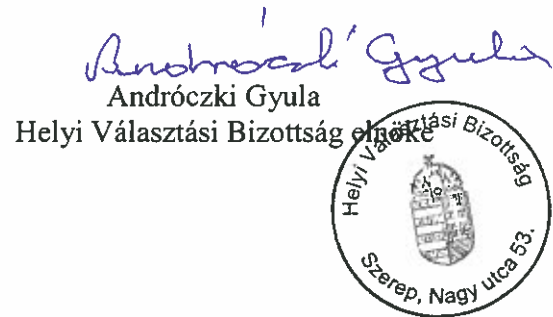 Andróczki Gyula
Andróczki Gyula
Helyi Választási Bizottság elnöke
Helyi Választási Bizottság
Szerep, Nagy utca 53.